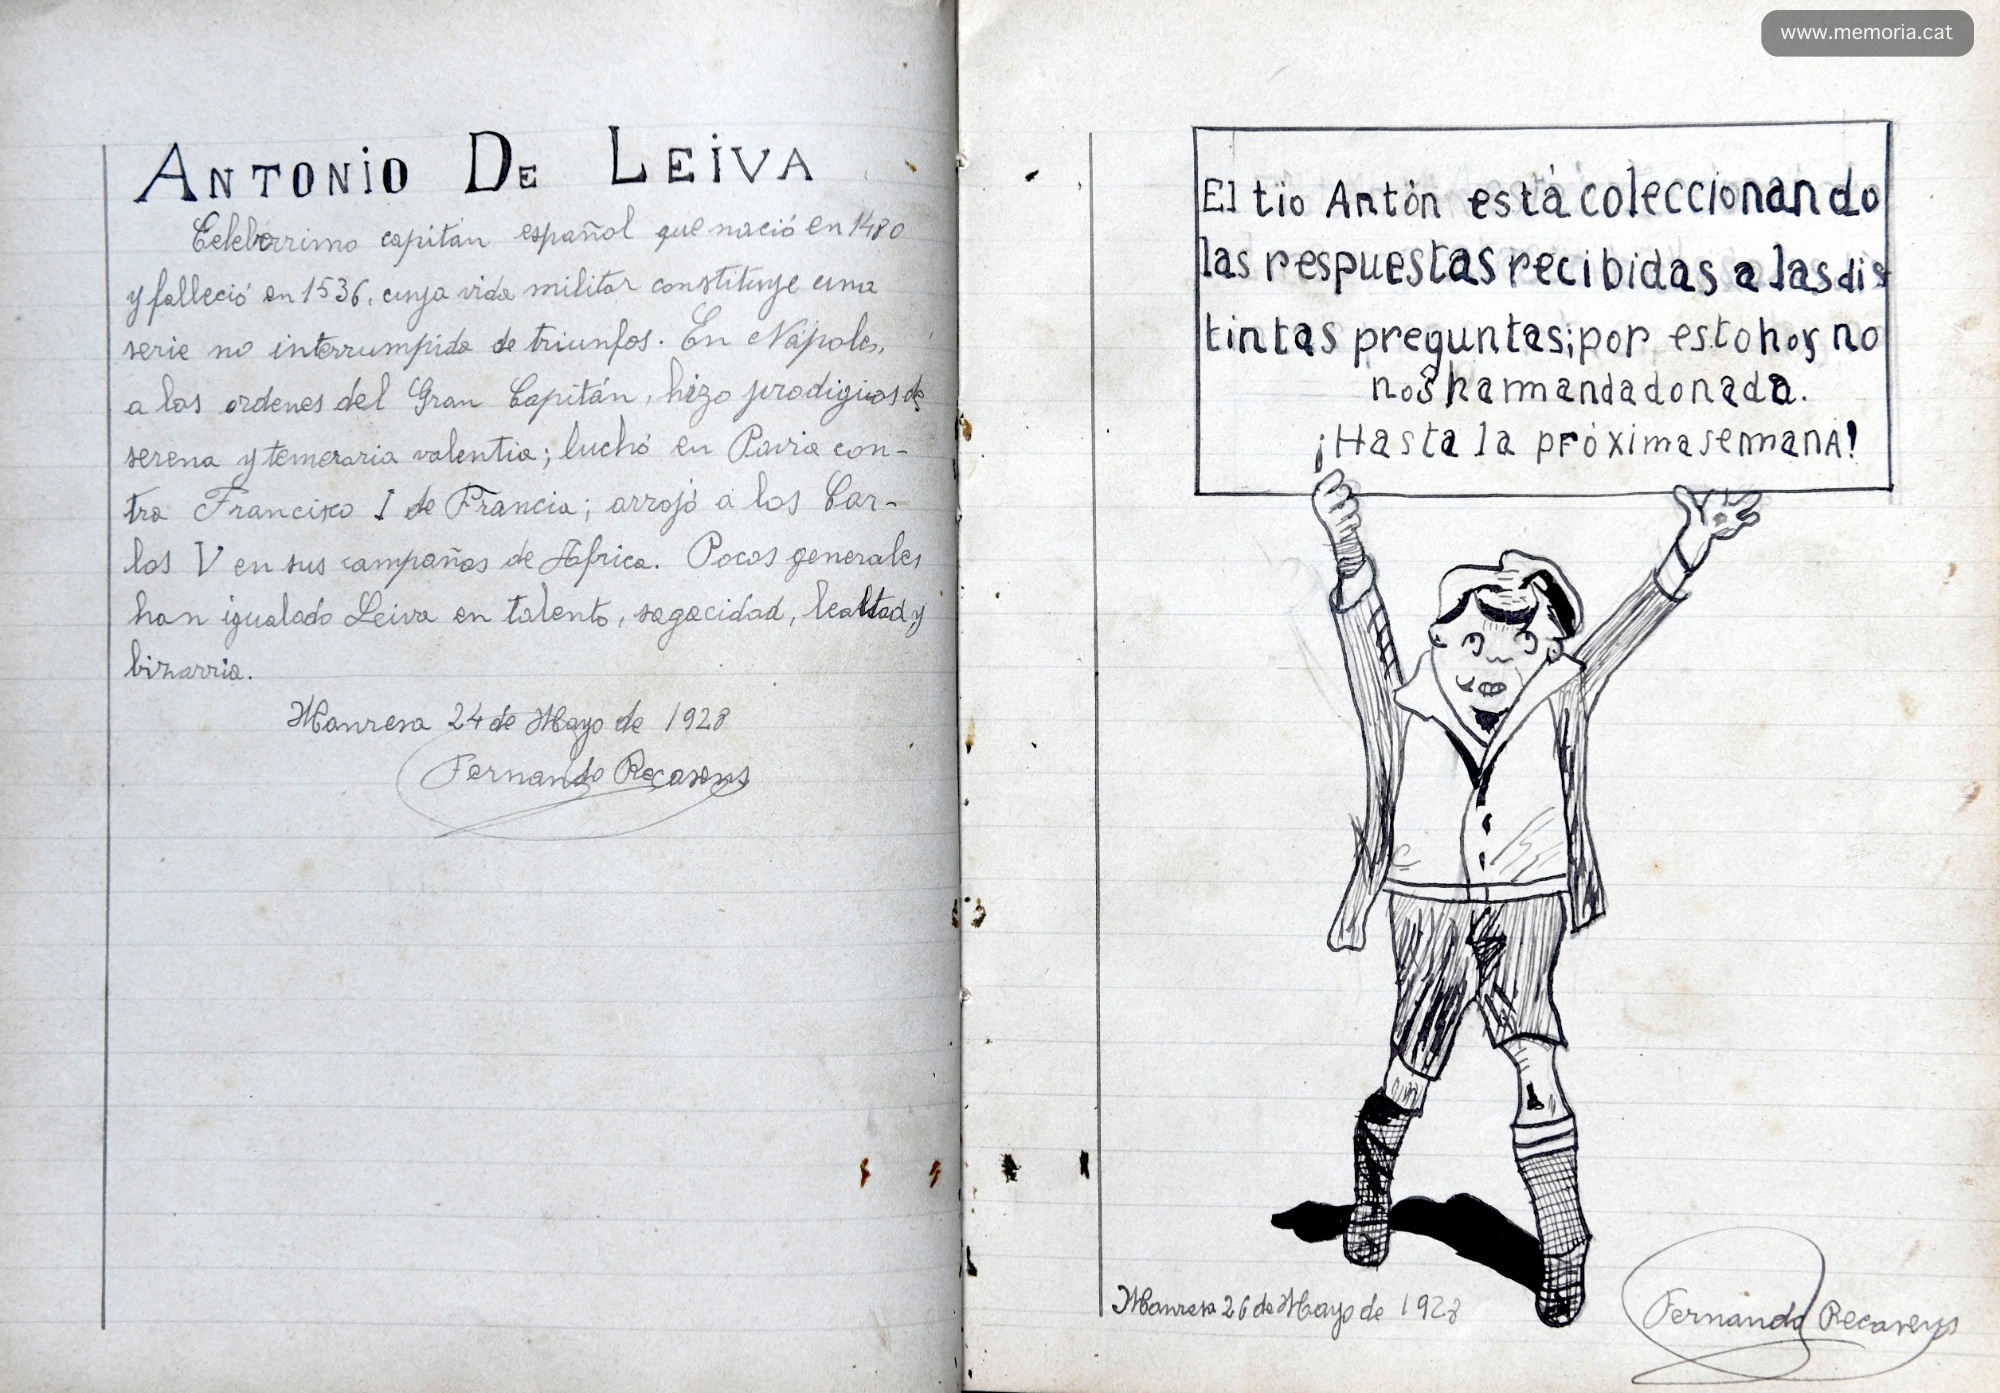 ANTONIO DE LEIVA
Celeberrimo capitán español que nació en 1480
y falleció en 1536, cuya vida militar constituye una
serie no interrumpida de triunfos. En Nápoles,
a las ordenes del Gran Capitán, hizo prodigios de
serena y temeraria valentia; luchó en Pavia con-
tra Francisco I de Francia; arrojó a los Car-
los V en sus campañas de Africa. Pocos generales
han igualado Leiva en talento, sagacidad, lealtad, y
bizarria.
Manresa 24 de Mayo de 1928
Fernando Recasens
www.memoria.cat
El tio Antón está coleccionando
las respuestas recibidas a las dis
tintas preguntas; por esto hoy no
nos ha mandado nada.
¡Hasta la próxima semana!
Manresa 26 de Mayo de 1928
Fernando Recasens